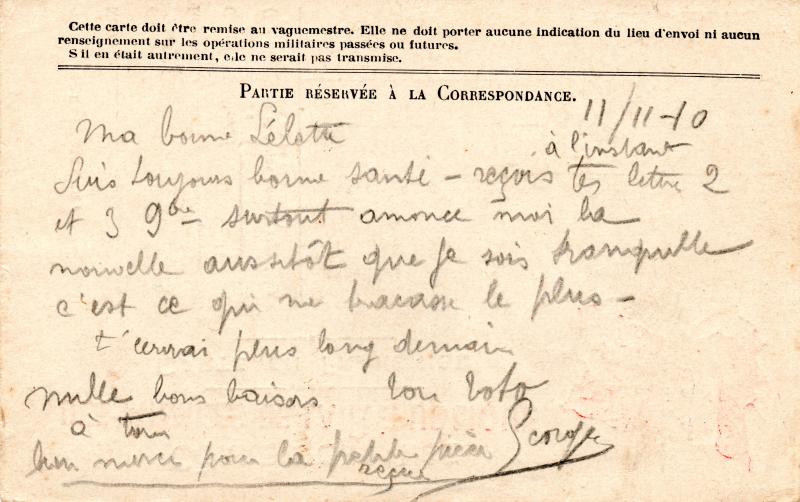 Cette carte doit être remise au vaguemestre. Elle ne doit porter aucune indication du lieu d'envoi ni aucun
renseignement sur les opérations militaires passées ou futures.
S il en était autrement, elle ne serait pas transmise.
PARTIE RÉSERVÉE À LA CORRESPONDANCE.
11/11-10
Ma bonne
à l'instant
Suis toujours bonne santé - reçois tes lettre 2
et 3 9bre surtout annonce moi la
nouvelle aussitôt que je sois tranquille
c'est ce qui me tracasse le plus -
t'écrirai plus long demain
mille bons baisers ton Toto
à tous
Georges
bien merci pour la petite pièce
reçue